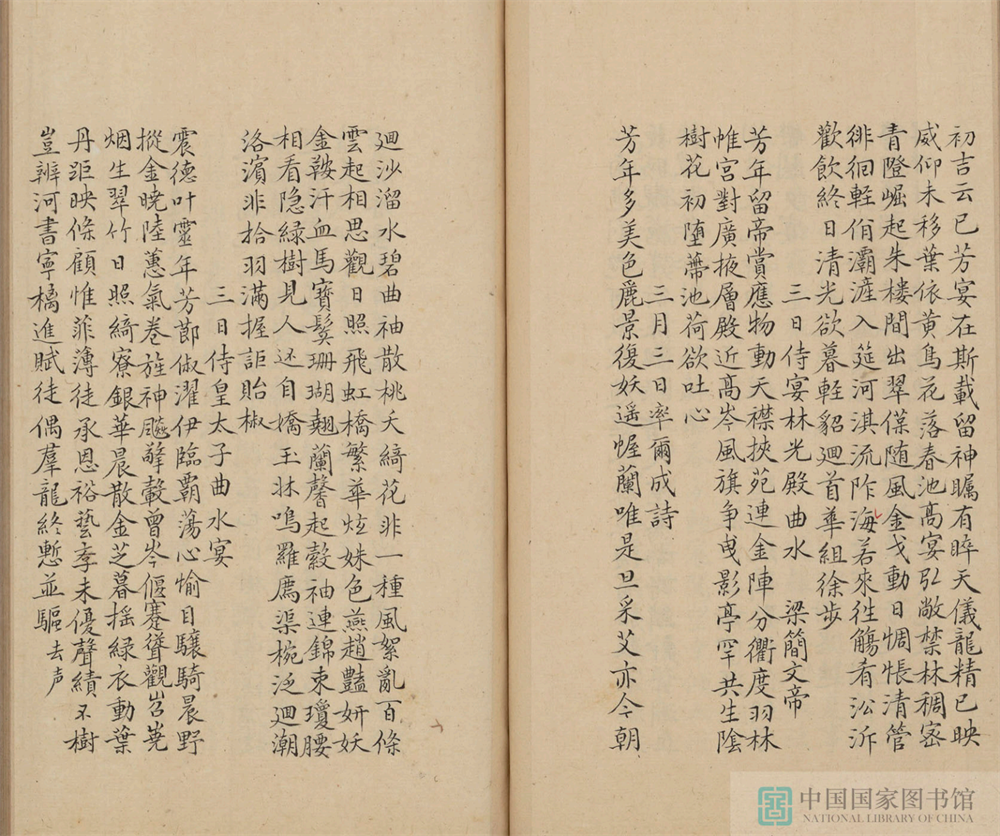 初吉云已芳宴在斯載留神矚有睟天儀龍精已映
威仰未移葉依黄鳥花落春池高宴弘敞禁林稠密
青墱崛起朱楼間出翠葆随風金戈動日惆悵清管
徘徊輕佾灞滻入筵河淇流阼海若來往觴肴沿泝
歡飲終日清光欲暮輕貂廻首華組徐步
三日侍宴林光殿曲水 梁簡文帝
芳年留帝賞應物動天襟挾苑連金陣分衢度羽林
帷宮對廣掖層殿近高岑風旗争曳影亭罕共生陰
樹花初墮蔕池荷欲吐心
三月三日率爾成詩
芳年多美色麗景復妖遥幄蘭唯是旦采艾亦今朝
廻沙溜水碧曲袖散桃夭綺花非一種風絮亂百條
雲起相思觀日照飛虹橋繁華炫姝色燕趙豔妍妖
金鞍汗血馬寶髮珊瑚翹蘭馨起縠袖連錦束瓊腰
相看隐緑樹見人还自嬌玉牀鳴羅廌渠椀泛廻潮
洛濵非拾羽滿握詎貽椒
三日侍皇太子曲水宴
震德叶靈年芳節俶濯伊臨覇蕩心愉目驤騎晨野
摐金曉陸蕙氣卷旌神飈擎轂曾岑偃蹇聳觀岧嶤
烟生翠竹日照綺寮銀華晨散金芝暮揺緑衣動葉
丹距映條顧惟菲薄徒承恩裕藝季未優聲績不樹
豈辨河書寧橘進賦徒偶羣龍終慙並驅去声
中国国家图书馆
NATIONAL LIBRARY OF CHINA